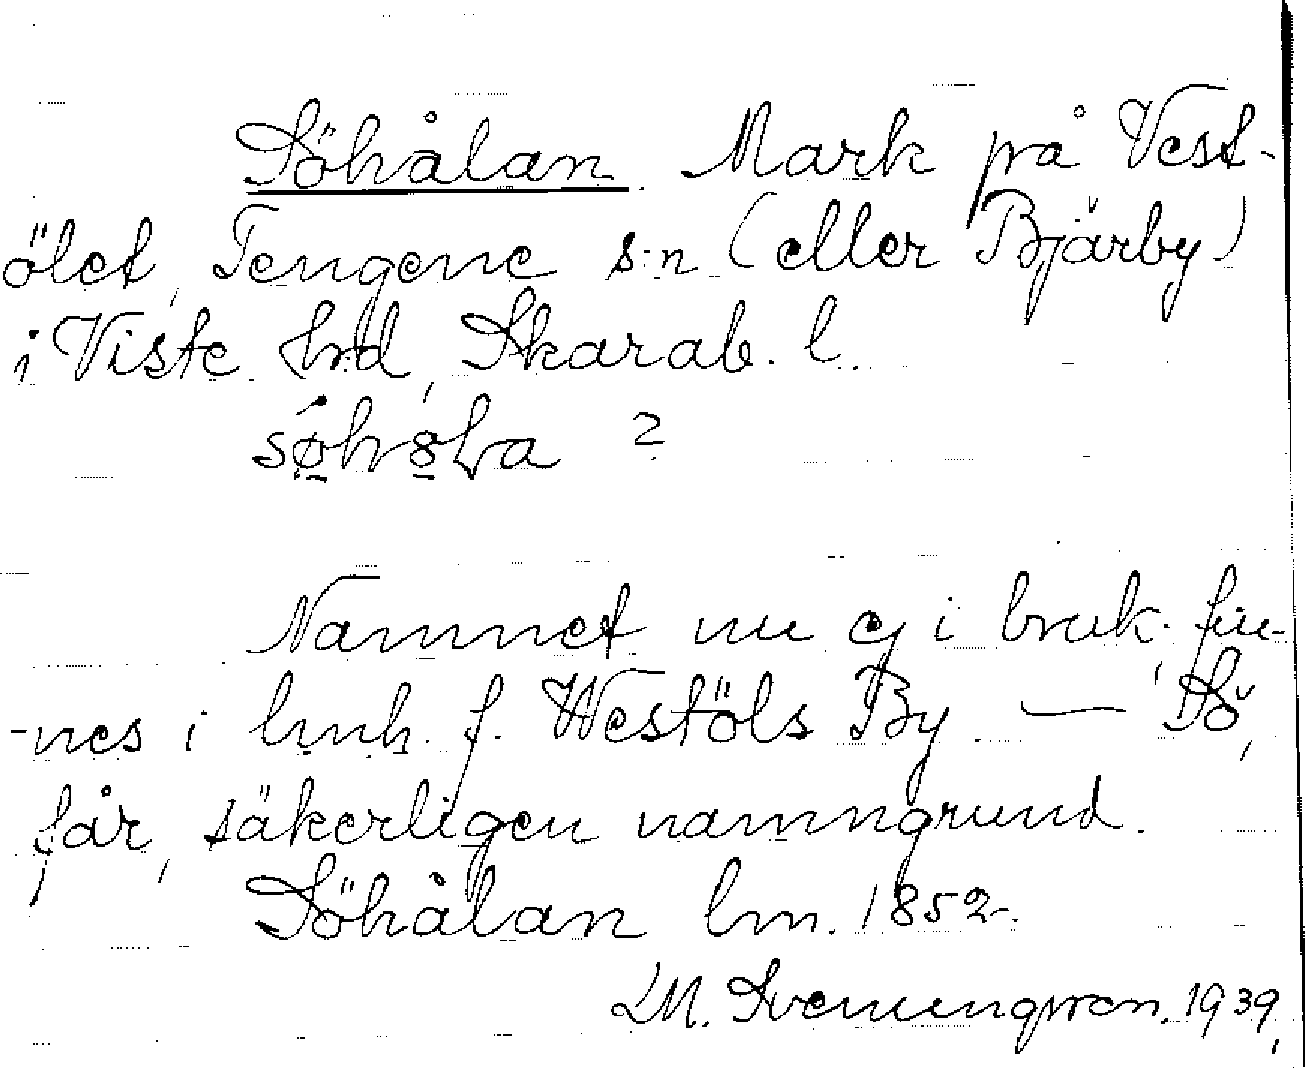 Söhålan Mark på Vest-
ölet, Tengene s:n (eller Bjärby)
i Viste hrd, Skarab. l.
Namnet nu ej i bruk; fin-
-nes i lmh. f. Westöls By. — Sö,
får, säkerligen namngrund.
Söhålan lm. 1852.
LM. Svenungsson. 1939.